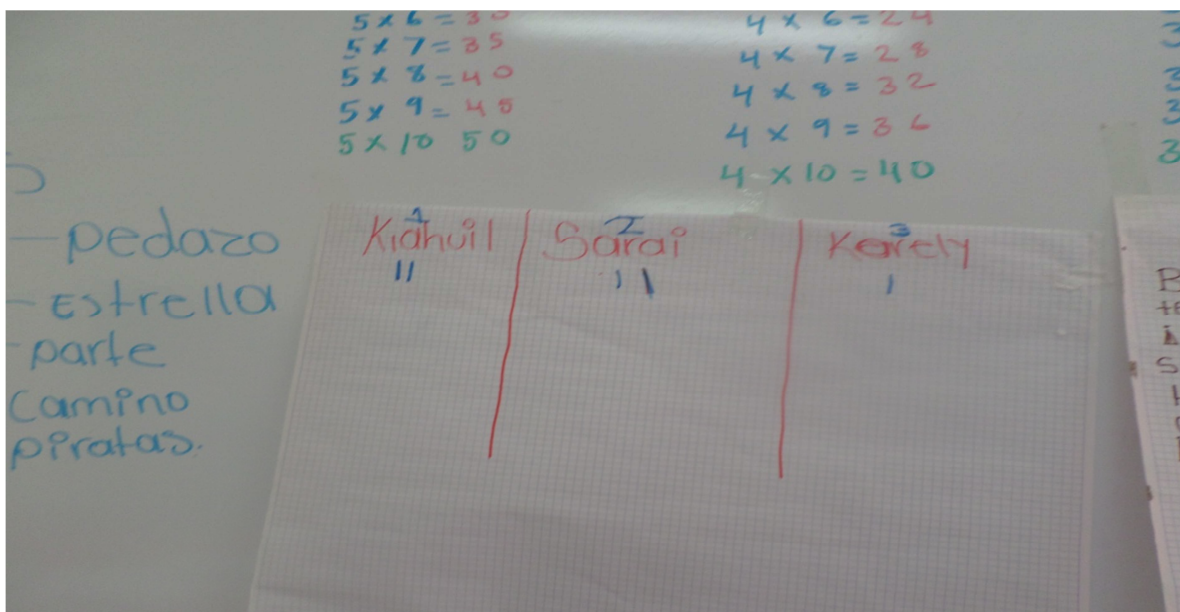 5 x 6 = 30
5 x 7 = 35
5 x 8 = 40
5 x 9 = 45
5 x 10 50
4 x 6 = 24
4 x 7 = 28
4 x 8 = 32
4 x 9 = 36
4 x 10 = 40
3
3
3
3
- pedazo
- Estrella
- parte
camino
piratas.
1 2 3
Kiahuil Sarai Kerely
II II I